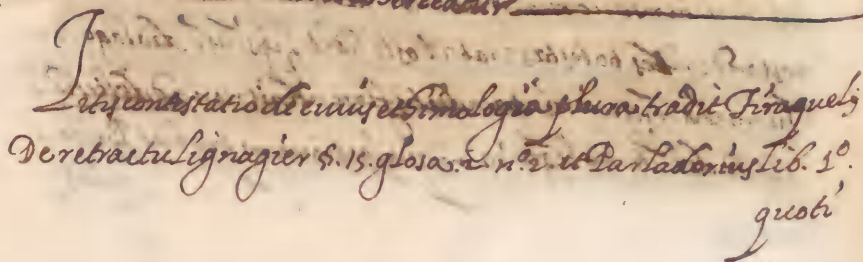 Litiscontestatio de cuius ethimologia plura tradit Tiraquelus
De retractu lignagier §. 15. glosa. 2. nº. 2. et Parladorius lib. 1º.
quoti